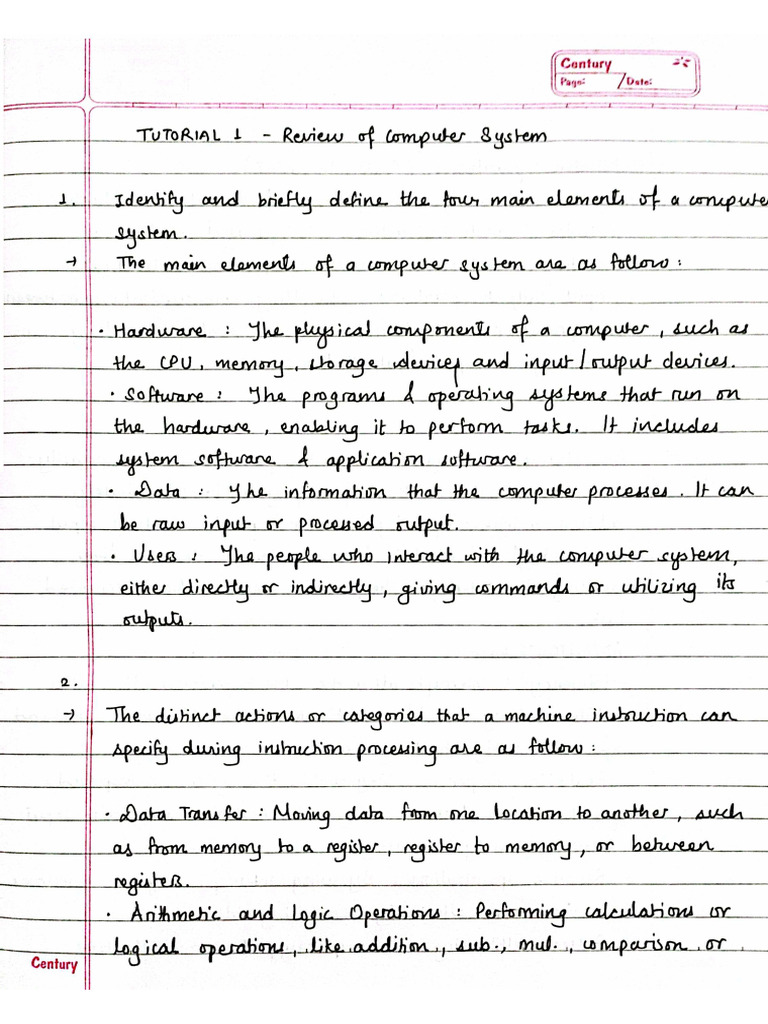 Century
Page: / Date:
TUTORIAL 1 - Review of Computer System
1. Identify and briefly define the four main elements of a compute
system.
→ The main elements of a computer system are as follow :
• Hardware : The physical components of a computer, such as
the CPU, memory, storage devices and input/output devices.
• Software : The programs & operating systems that run on
the hardware, enabling it to perform tasks. It includes
system software & application software.
• Data : The information that the computer processes. It can
be raw input or processed output.
• Users : The people who interact with the computer system,
either directly or indirectly, giving commands or utilizing its
outputs.
2.
→ The distinct actions or categories that a machine instruction can
specify during instruction processing are as follow :
• Data Transfer : Moving data from one location to another, such
as from memory to a register, register to memory, or between
registers.
• Arithmetic and Logic Operations : Performing calculations or
logical operations, like addition, sub., mul., comparison or
Century